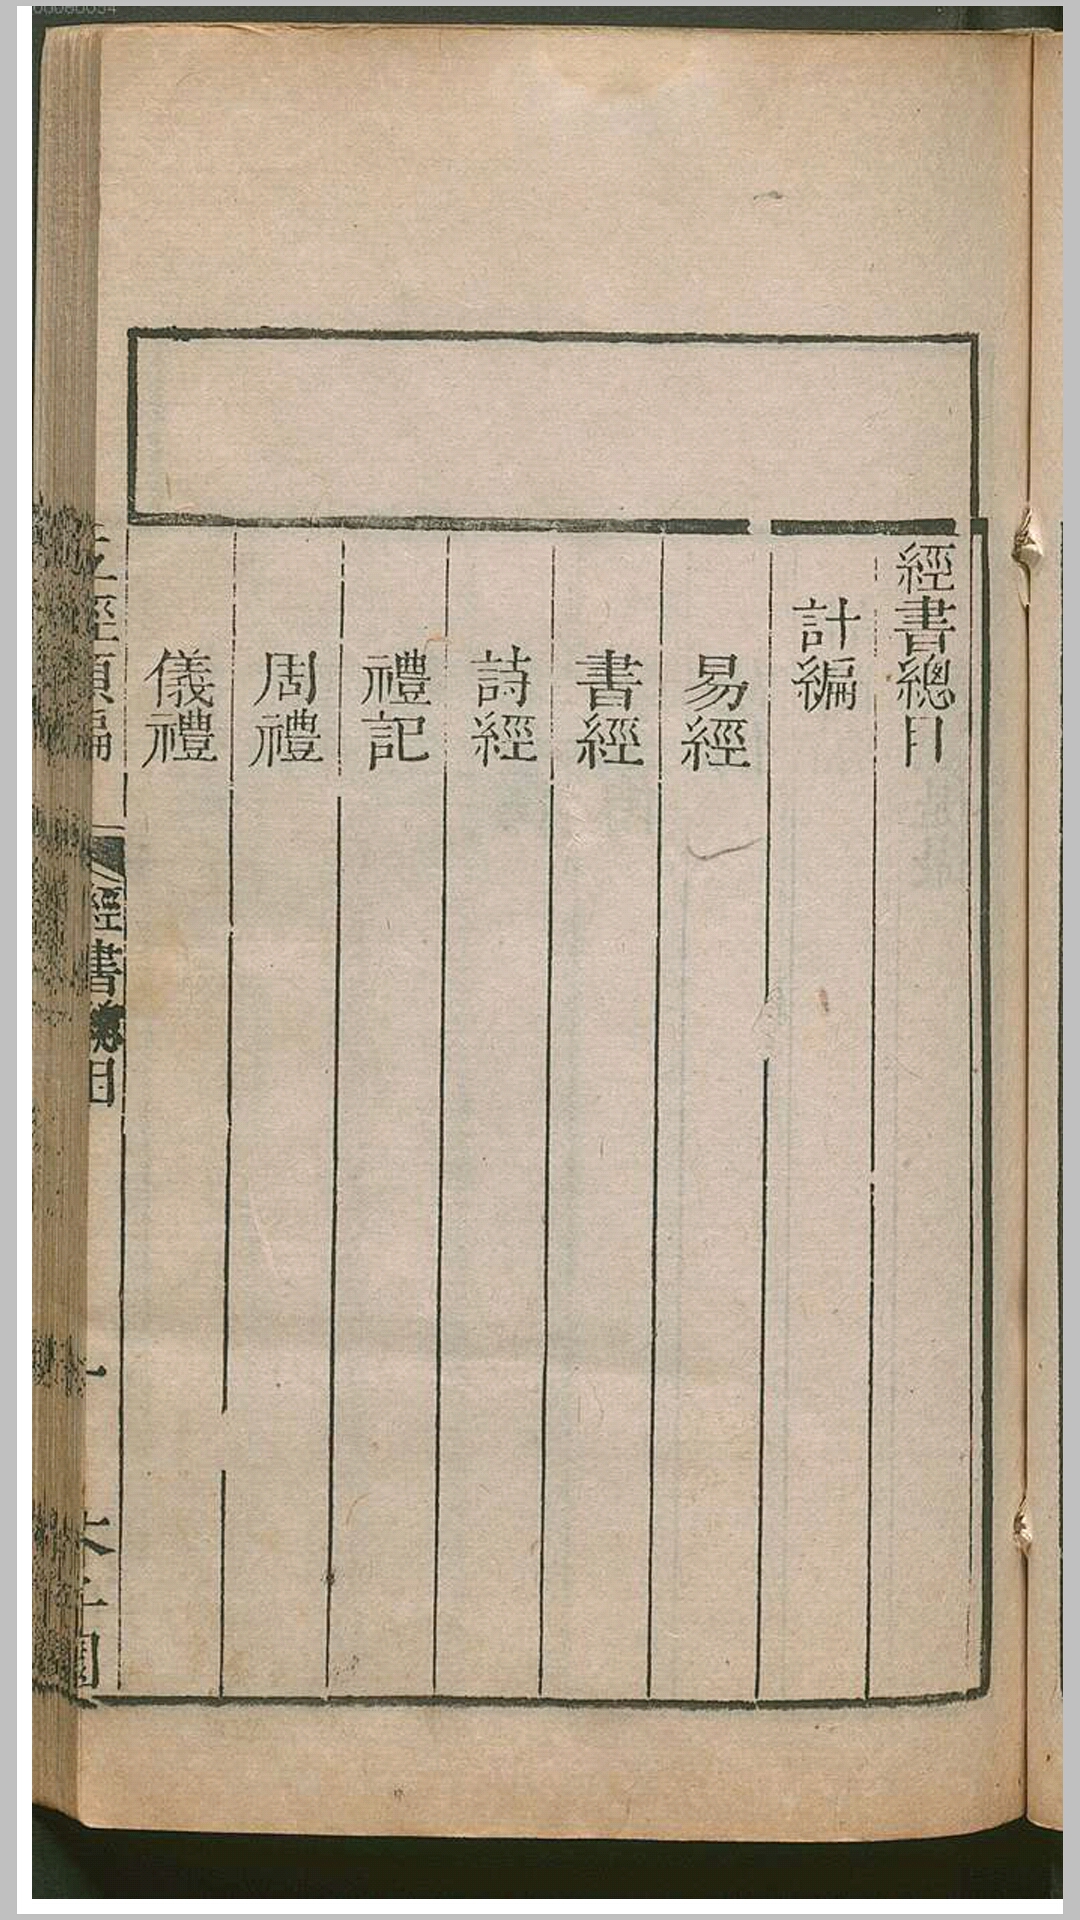 經書總目
計編
易經
書經
詩經
禮記
周禮
儀禮
經書總目